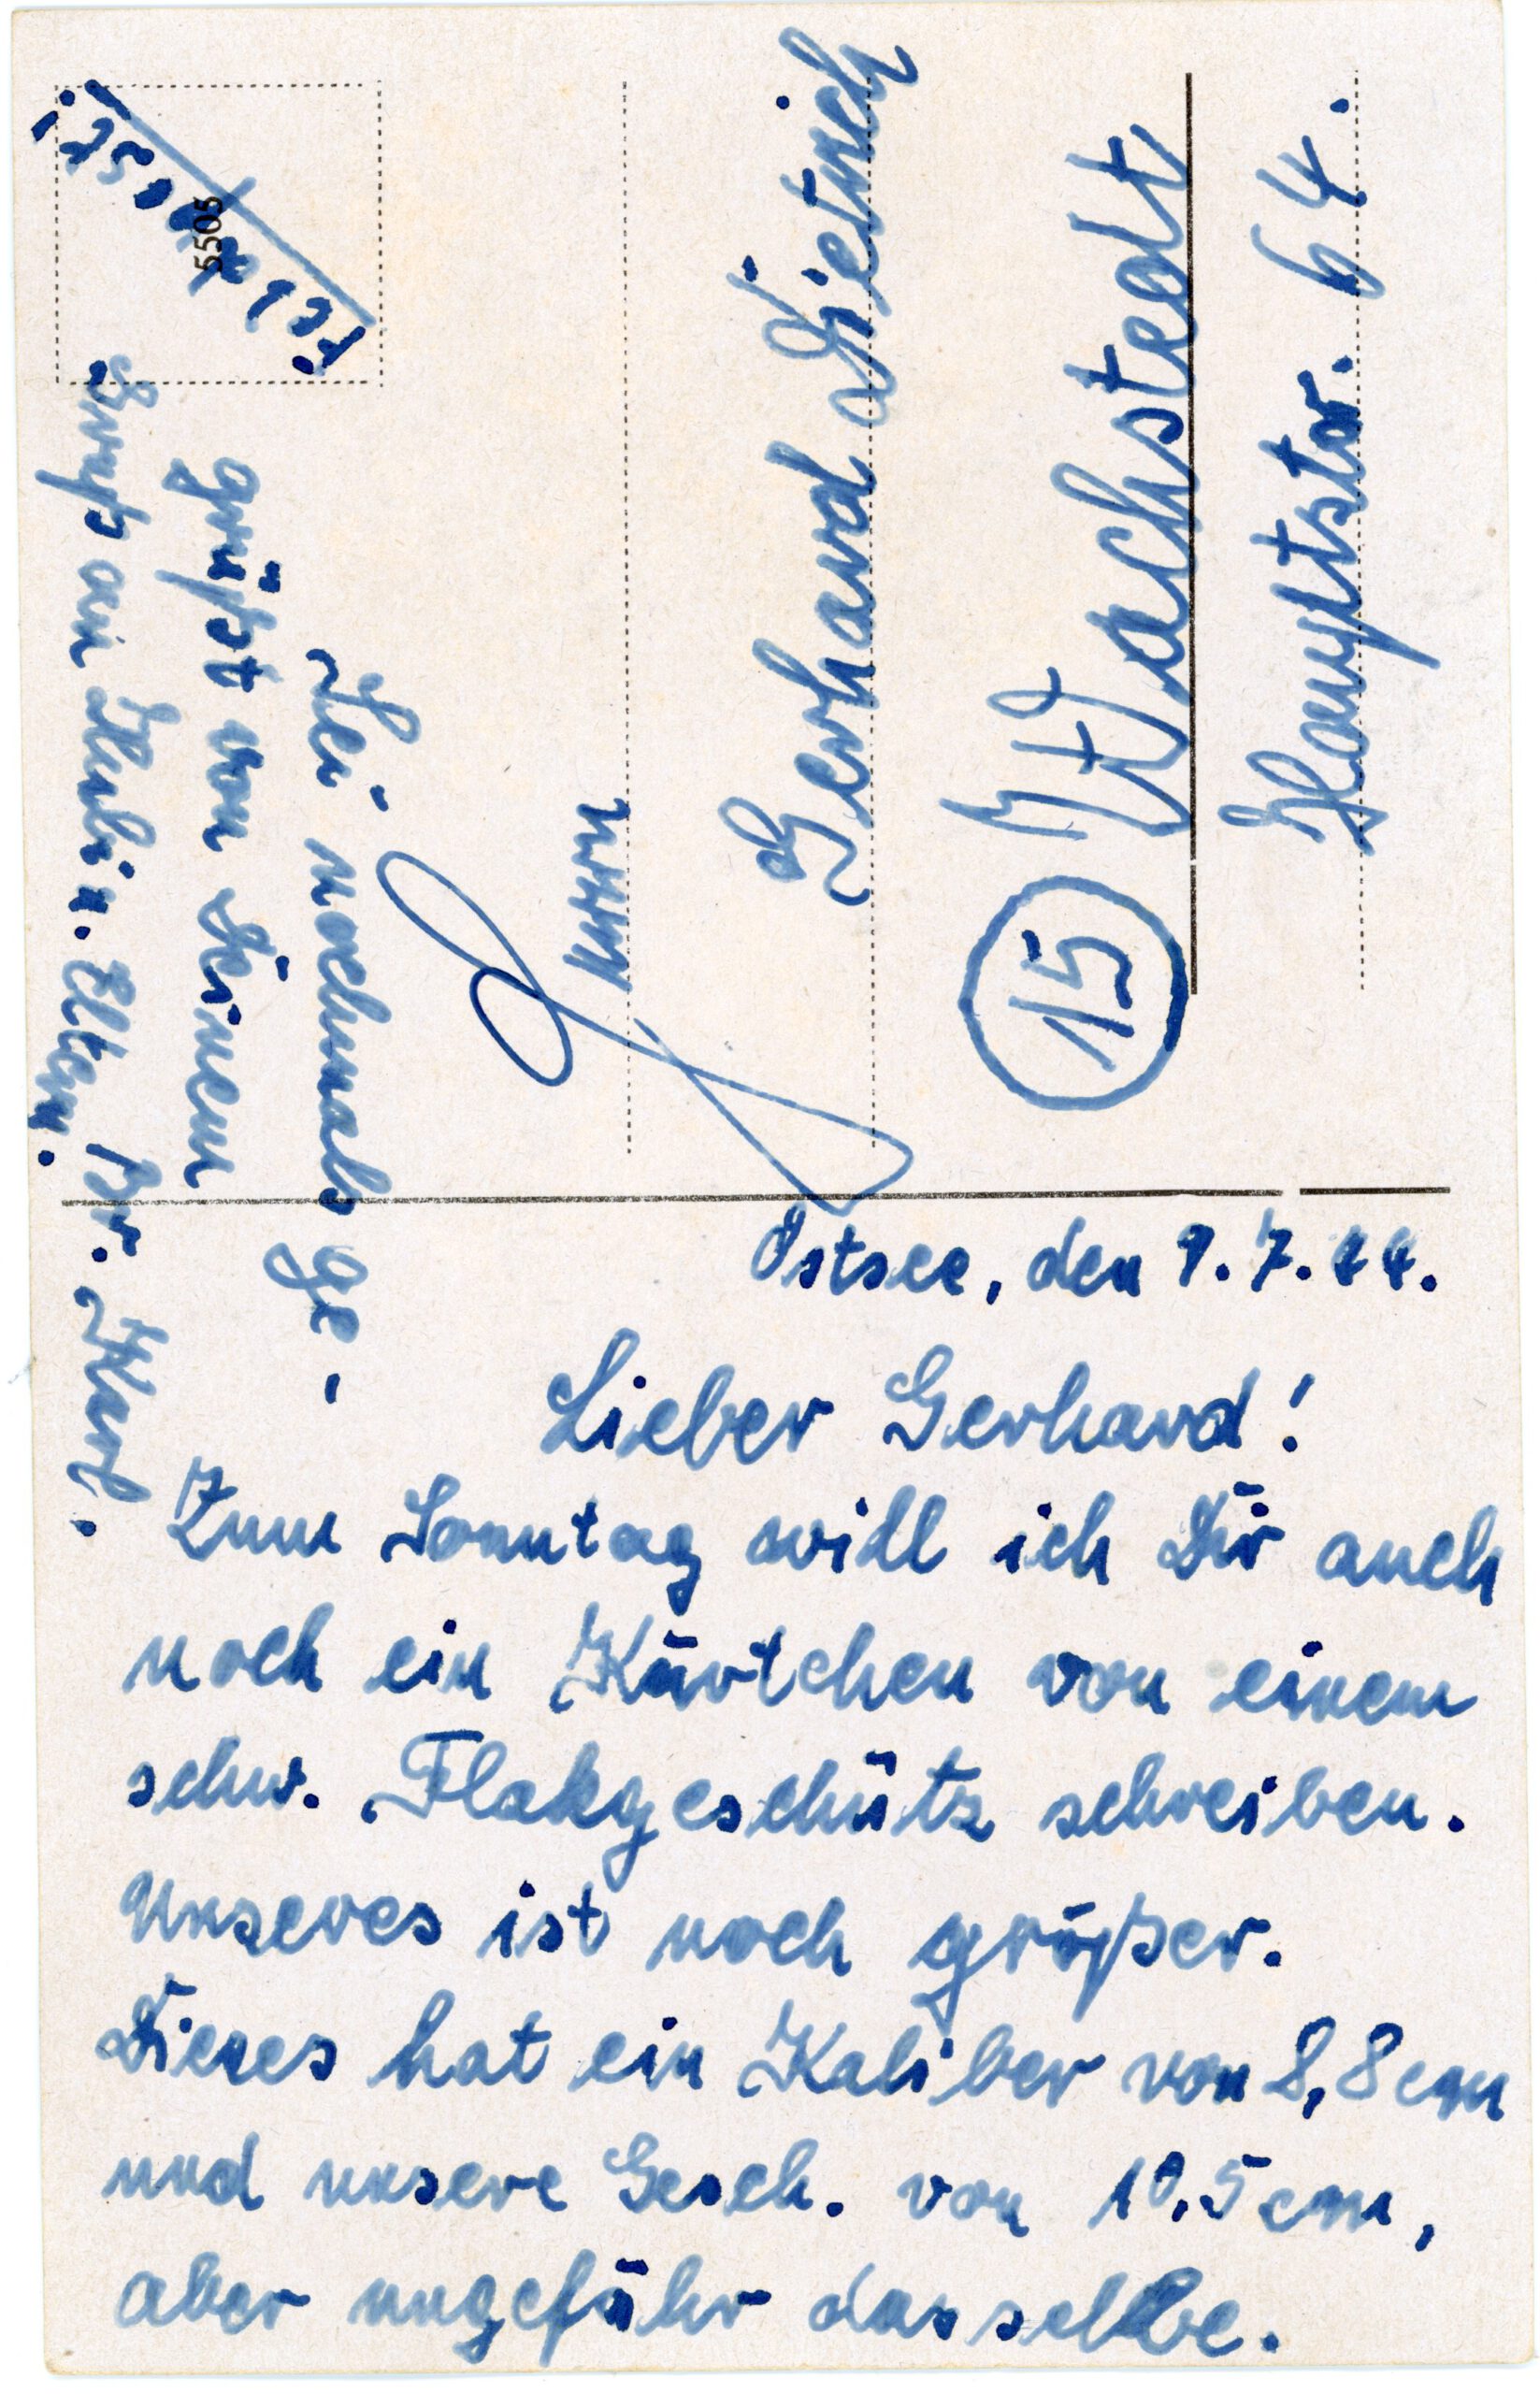 Ostsee, den 9.7.44.
Lieber Gerhard!
Zum Sonntag will ich Dir auch
noch ein Kärtchen von einem
schw. Flakgeschütz schreiben.
Unseres ist noch größer.
Dieses hat ein Kaliber von 8,8cm
und unsere Gesch. von 10,5cm,
aber ungefähr dasselbe.
Sei nochmals ge-
grüßt von Deinem Br. Karl.
Gruß an Heubi u. Eltern.
Feldpost!
5505
Jungmann
Gerhard Dietrich
(15) Wachstedt
Hauptstr. 64.